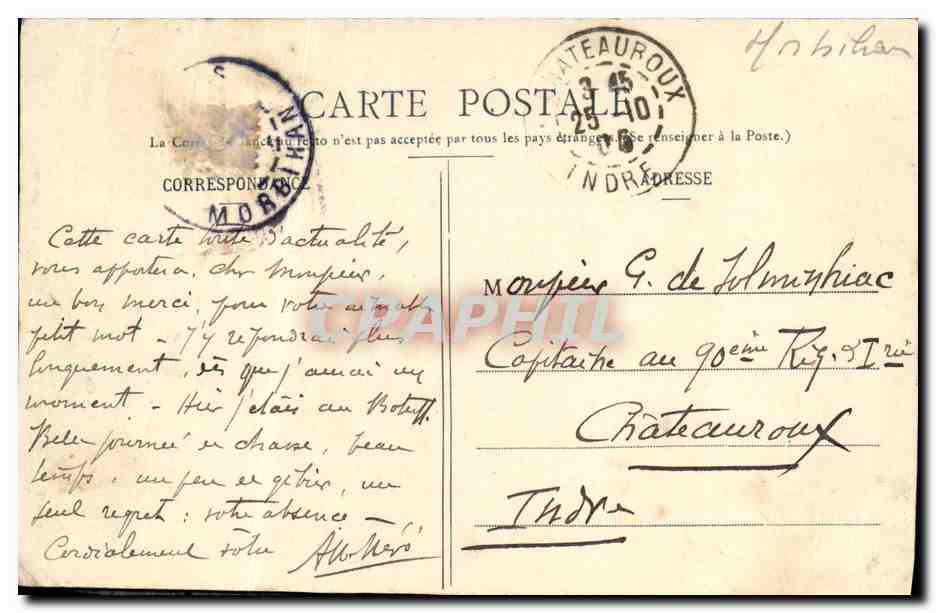 Morbihan
CHATEAUROUX
3 45
25 10
06
INDRE
MORBIHAN
CARTE POSTALE
La Correspondance au recto n'est pas acceptée par tous les pays étrangers. (Se renseigner à la Poste.)
CORRESPONDANCE
ADRESSE
Cette carte toute d'actualité,
vous apportera, cher Monsieur,
un bon merci, pour votre aimable
petit mot – J'y répondrai plus
longuement, dès que j'aurai un
moment – Hier j'étais au
Belle journée de chasse, beau
temps, un peu de gibier, un
seul regret : votre absence –
Cordialement vôtre
Monsieur G. de
Capitaine au 90ème Rég. d'Irie
Châteauroux
Indre
CPAPHIL